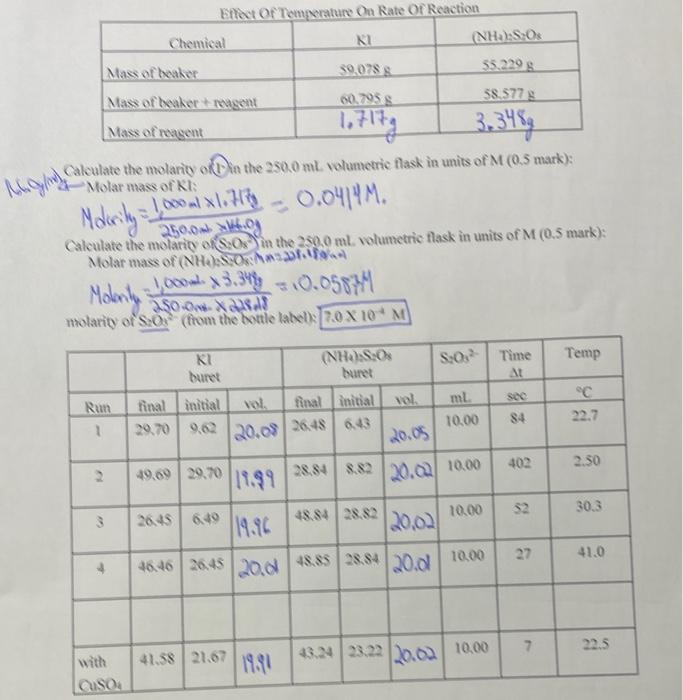 Effect Of Temperature On Rate Of Reaction
Chemical KI (NH₄)₂S₂O₈
Mass of beaker 59.078 g 55.229 g
Mass of beaker + reagent 60.795 g 58.577 g
Mass of reagent 1.717g 3.348g
Calculate the molarity of I⁻ in the 250.0 mL volumetric flask in units of M (0.5 mark):
Molar mass of KI:
Molarity = 1,000ml × 1.717g / 250.0ml × 166.0g = 0.0414M.
Calculate the molarity of S₂O₈²⁻ in the 250.0 mL volumetric flask in units of M (0.5 mark):
Molar mass of (NH₄)₂S₂O₈:
Molarity = 1,000ml × 3.348g / 250.0ml × 228.18 = 0.0587M
molarity of S₂O₃²⁻ (from the bottle label): 7.0 X 10⁻⁴ M
KI (NH₄)₂S₂O₈ S₂O₃²⁻ Time Temp
buret buret Δt
Run final initial vol. final initial vol. mL sec °C
1 29.70 9.62 20.08 26.48 6.43 20.05 10.00 84 22.7
2 49.69 29.70 19.99 28.84 8.82 20.02 10.00 402 2.50
3 26.45 6.49 19.96 48.84 28.82 20.02 10.00 52 30.3
4 46.46 26.45 20.01 48.85 28.84 20.01 10.00 27 41.0
with 41.58 21.67 19.91 43.24 23.22 20.02 10.00 7 22.5
CuSO₄